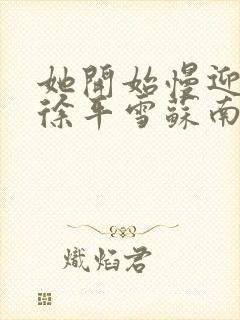 她開始慢迎
徐平雪蘇南
熾焰君